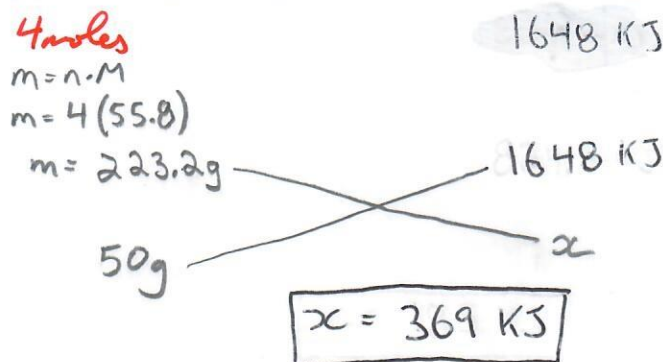 4 moles 1648 KJ
m = n·M
m = 4(55.8)
m = 223.2g 1648 KJ
50g x
x = 369 KJ